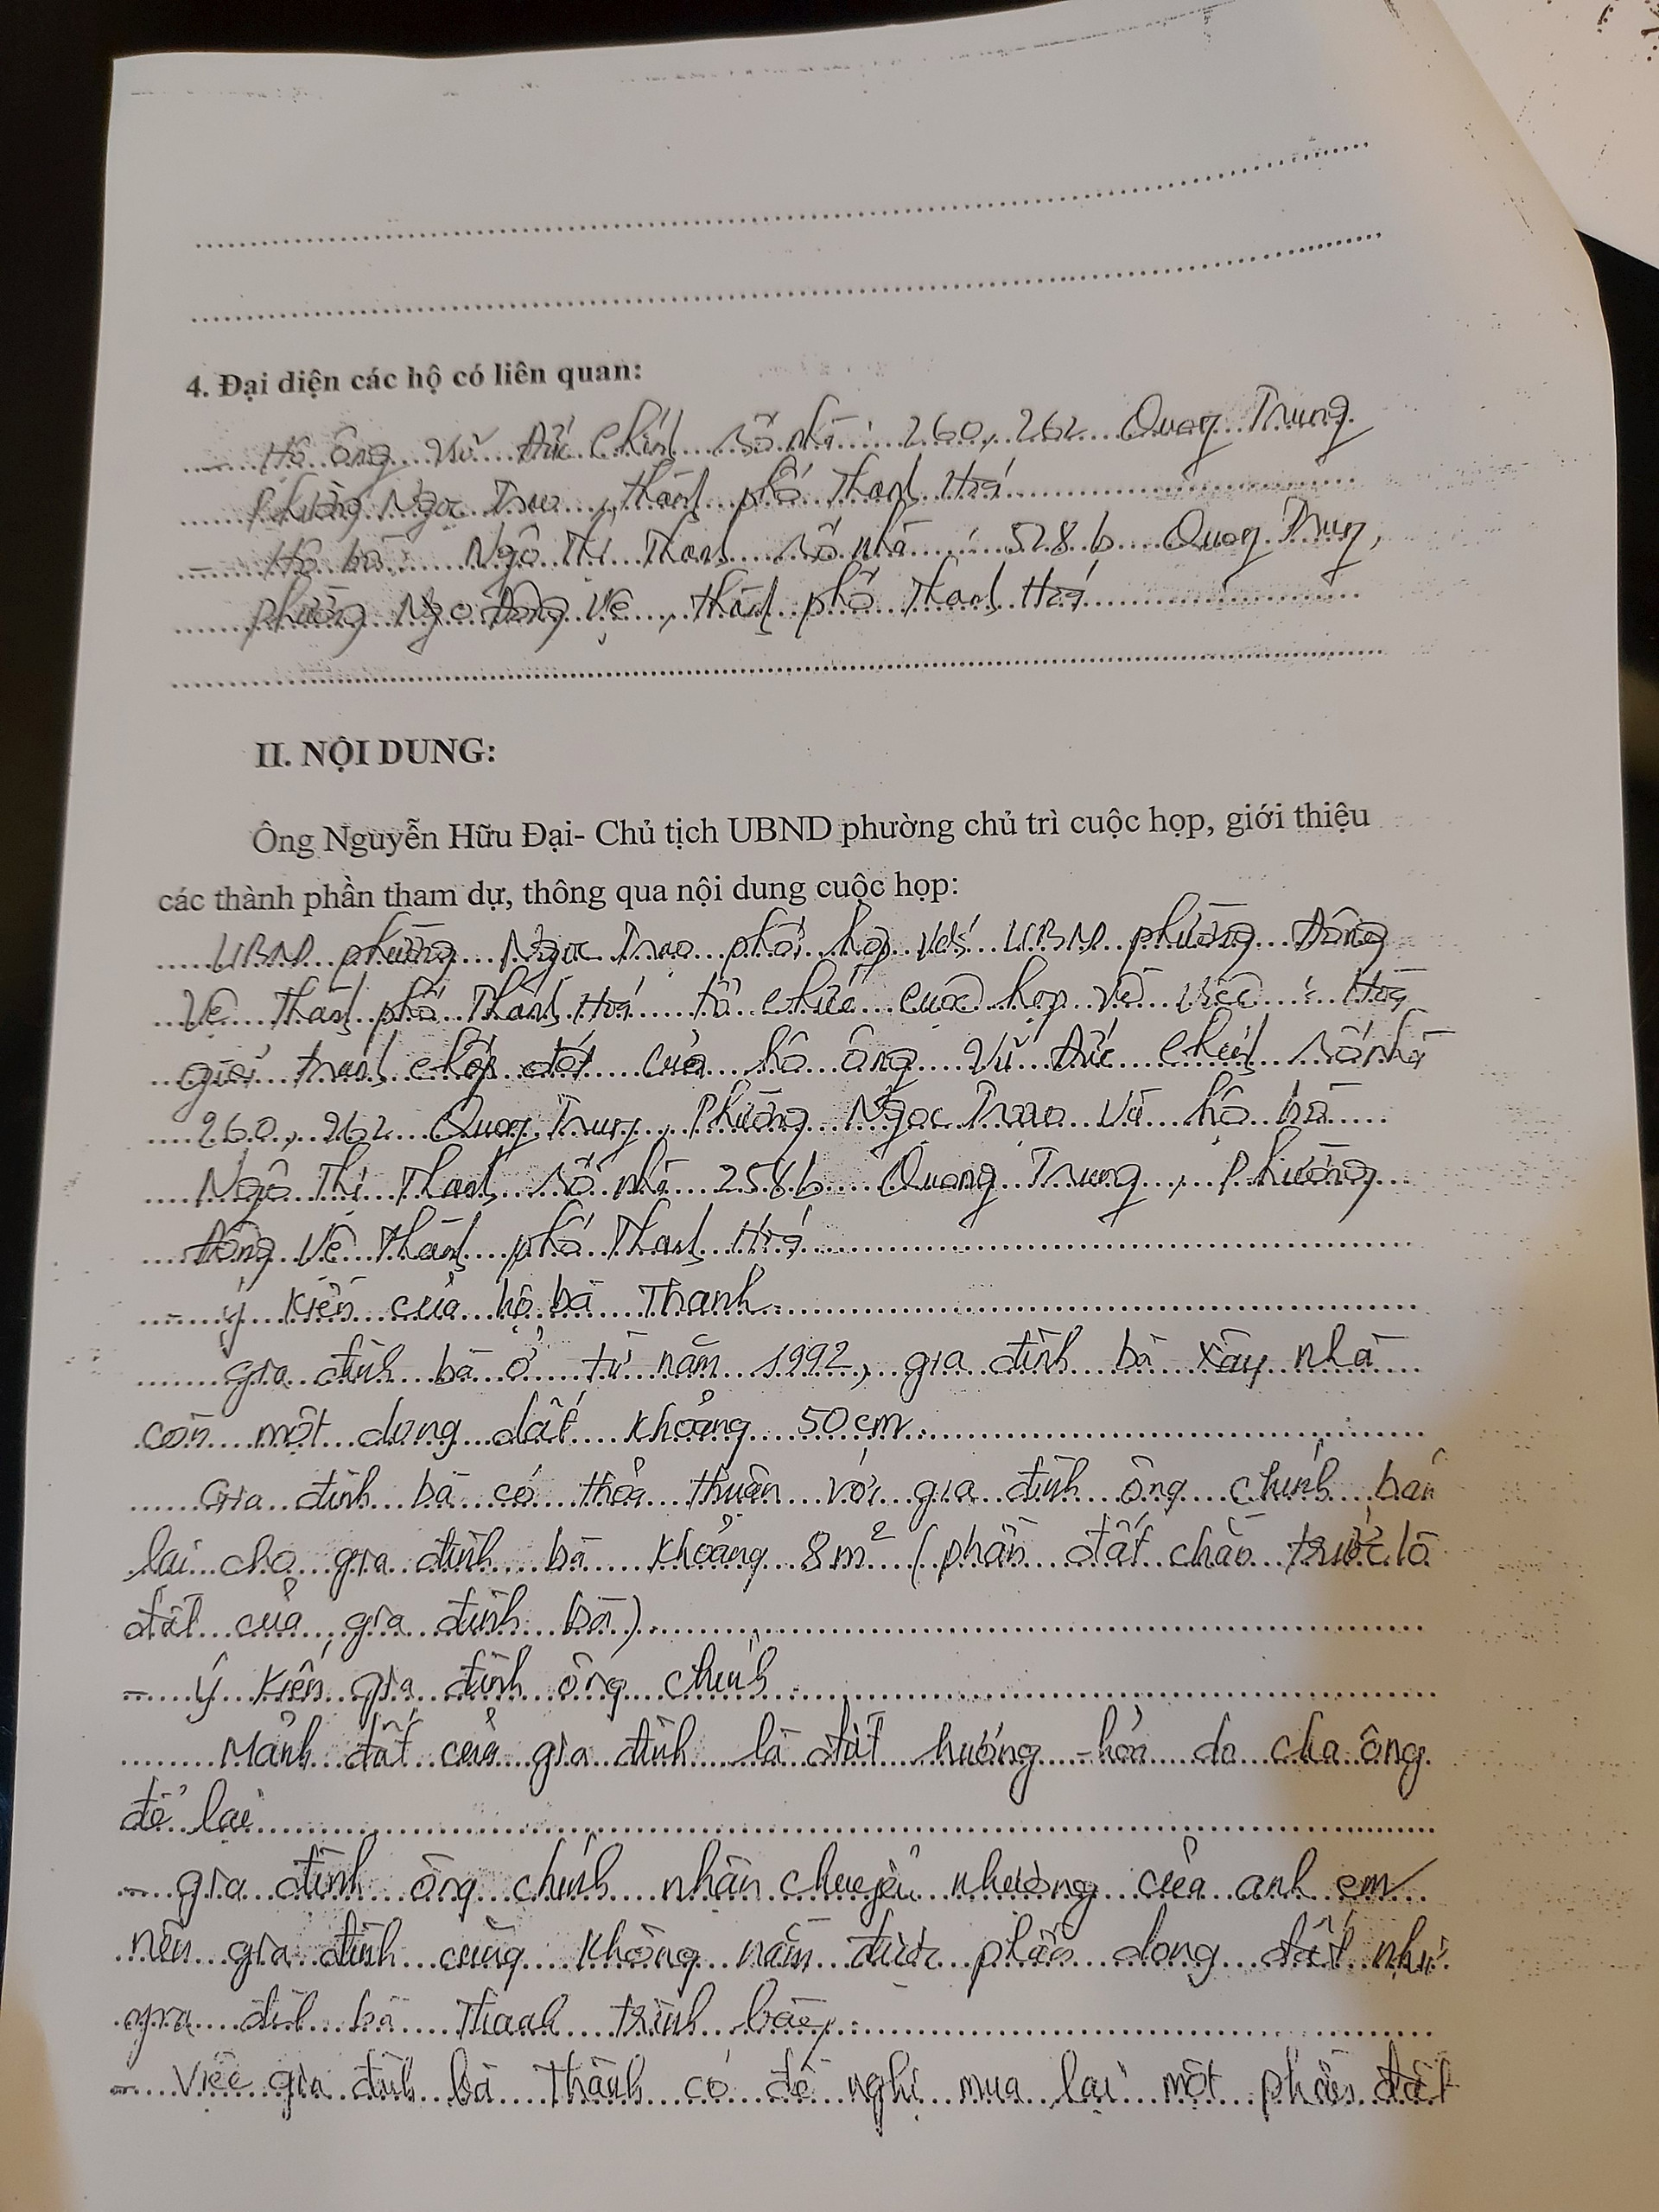 4. Đại diện các hộ có liên quan:
- Hộ ông Vũ Đức Chính số nhà : 260, 262 Quang Trung
Phường Ngọc Trao, thành phố Thanh Hoá
- Hộ bà Ngô Thị Thanh số nhà : 528b Quang Trung,
phường Đông Vệ, thành phố Thanh Hoá
II. NỘI DUNG:
Ông Nguyễn Hữu Đại- Chủ tịch UBND phường chủ trì cuộc họp, giới thiệu
các thành phần tham dự, thông qua nội dung cuộc họp:
UBND phường Ngọc Trao phối hợp với UBND phường Đông
Vệ thành phố Thanh Hoá tổ chức cuộc họp về việc : Hoà
giải tranh chấp đất của hộ ông Vũ Đức Chính số nhà
260, 262 Quang Trung, Phường Ngọc Trao và hộ bà
Ngô Thị Thanh số nhà 258b Quang Trung, Phường
Đông Vệ thành phố Thanh Hoá
- ý kiến của hộ bà Thanh
gia đình bà ở từ năm 1992, gia đình bà xây nhà
còn một dong đất khoảng 50cm
Gia đình bà có thỏa thuận với gia đình ông chính bán
lại cho gia đình bà khoảng 8m² (phần đất chắn trước lô
đất của gia đình bà)
- ý kiến gia đình ông chính
Mảnh đất của gia đình là đất hương hỏa do cha ông
để lại
- gia đình ông chính nhận chuyển nhượng của anh em
nên gia đình cũng không nắm được phần dong đất như
gia đình bà Thanh trình bày
- Việc gia đình bà Thanh có đề nghị mua lại một phần đất